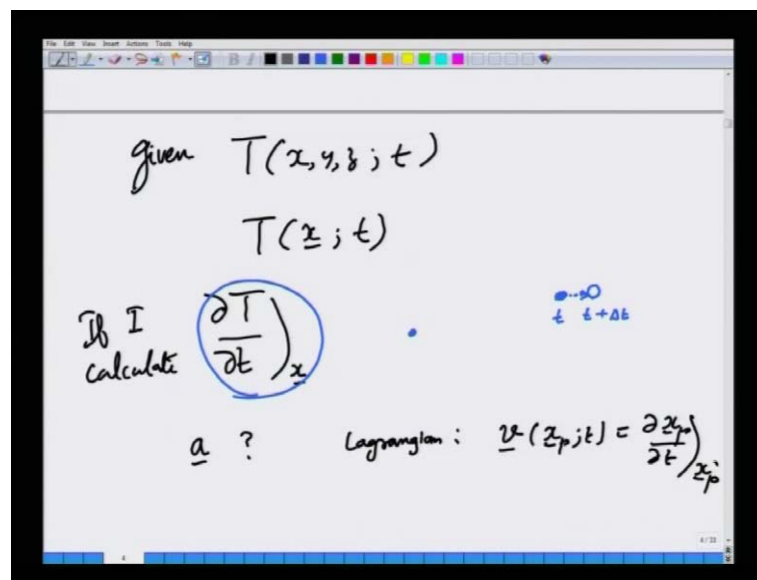 File Edit View Insert Actions Tools Help
given T(x,y,z ; t)
T(x ; t)
If I calculate ∂T/∂t)x
t t+Δt
a ? Lagrangian : v(xp;t) = ∂xp/∂t)xp°
4/33
4